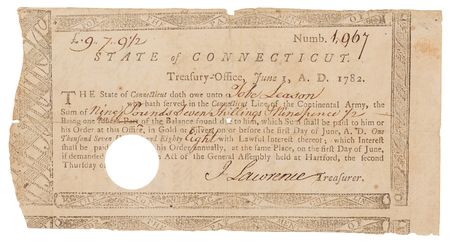 £9.7.9½ Numb. 1,967
STATE of CONNECTICUT.
Treasury-Office, June 1, A. D. 1782.
THE State of Connecticut doth owe unto
who hath served in the Connecticut Line of the Continental Army, the
Sum of Nine Pounds Seven Shillings & Nine pence ½
Being one Part of the Balance found due to him, which Sum shall be paid to him or
his Order at this Office, in Gold or Silver, on or before the first Day of June, A. D. One
Thousand Seven Hundred Eighty Eight with Lawful Interest thereof; which Interest
shall be paid Order, annually, at the same Place, on the first Day of June,
if demanded Act of the General Assembly held at Hartford, the second
Thursday of
J Lawrence Treasurer.